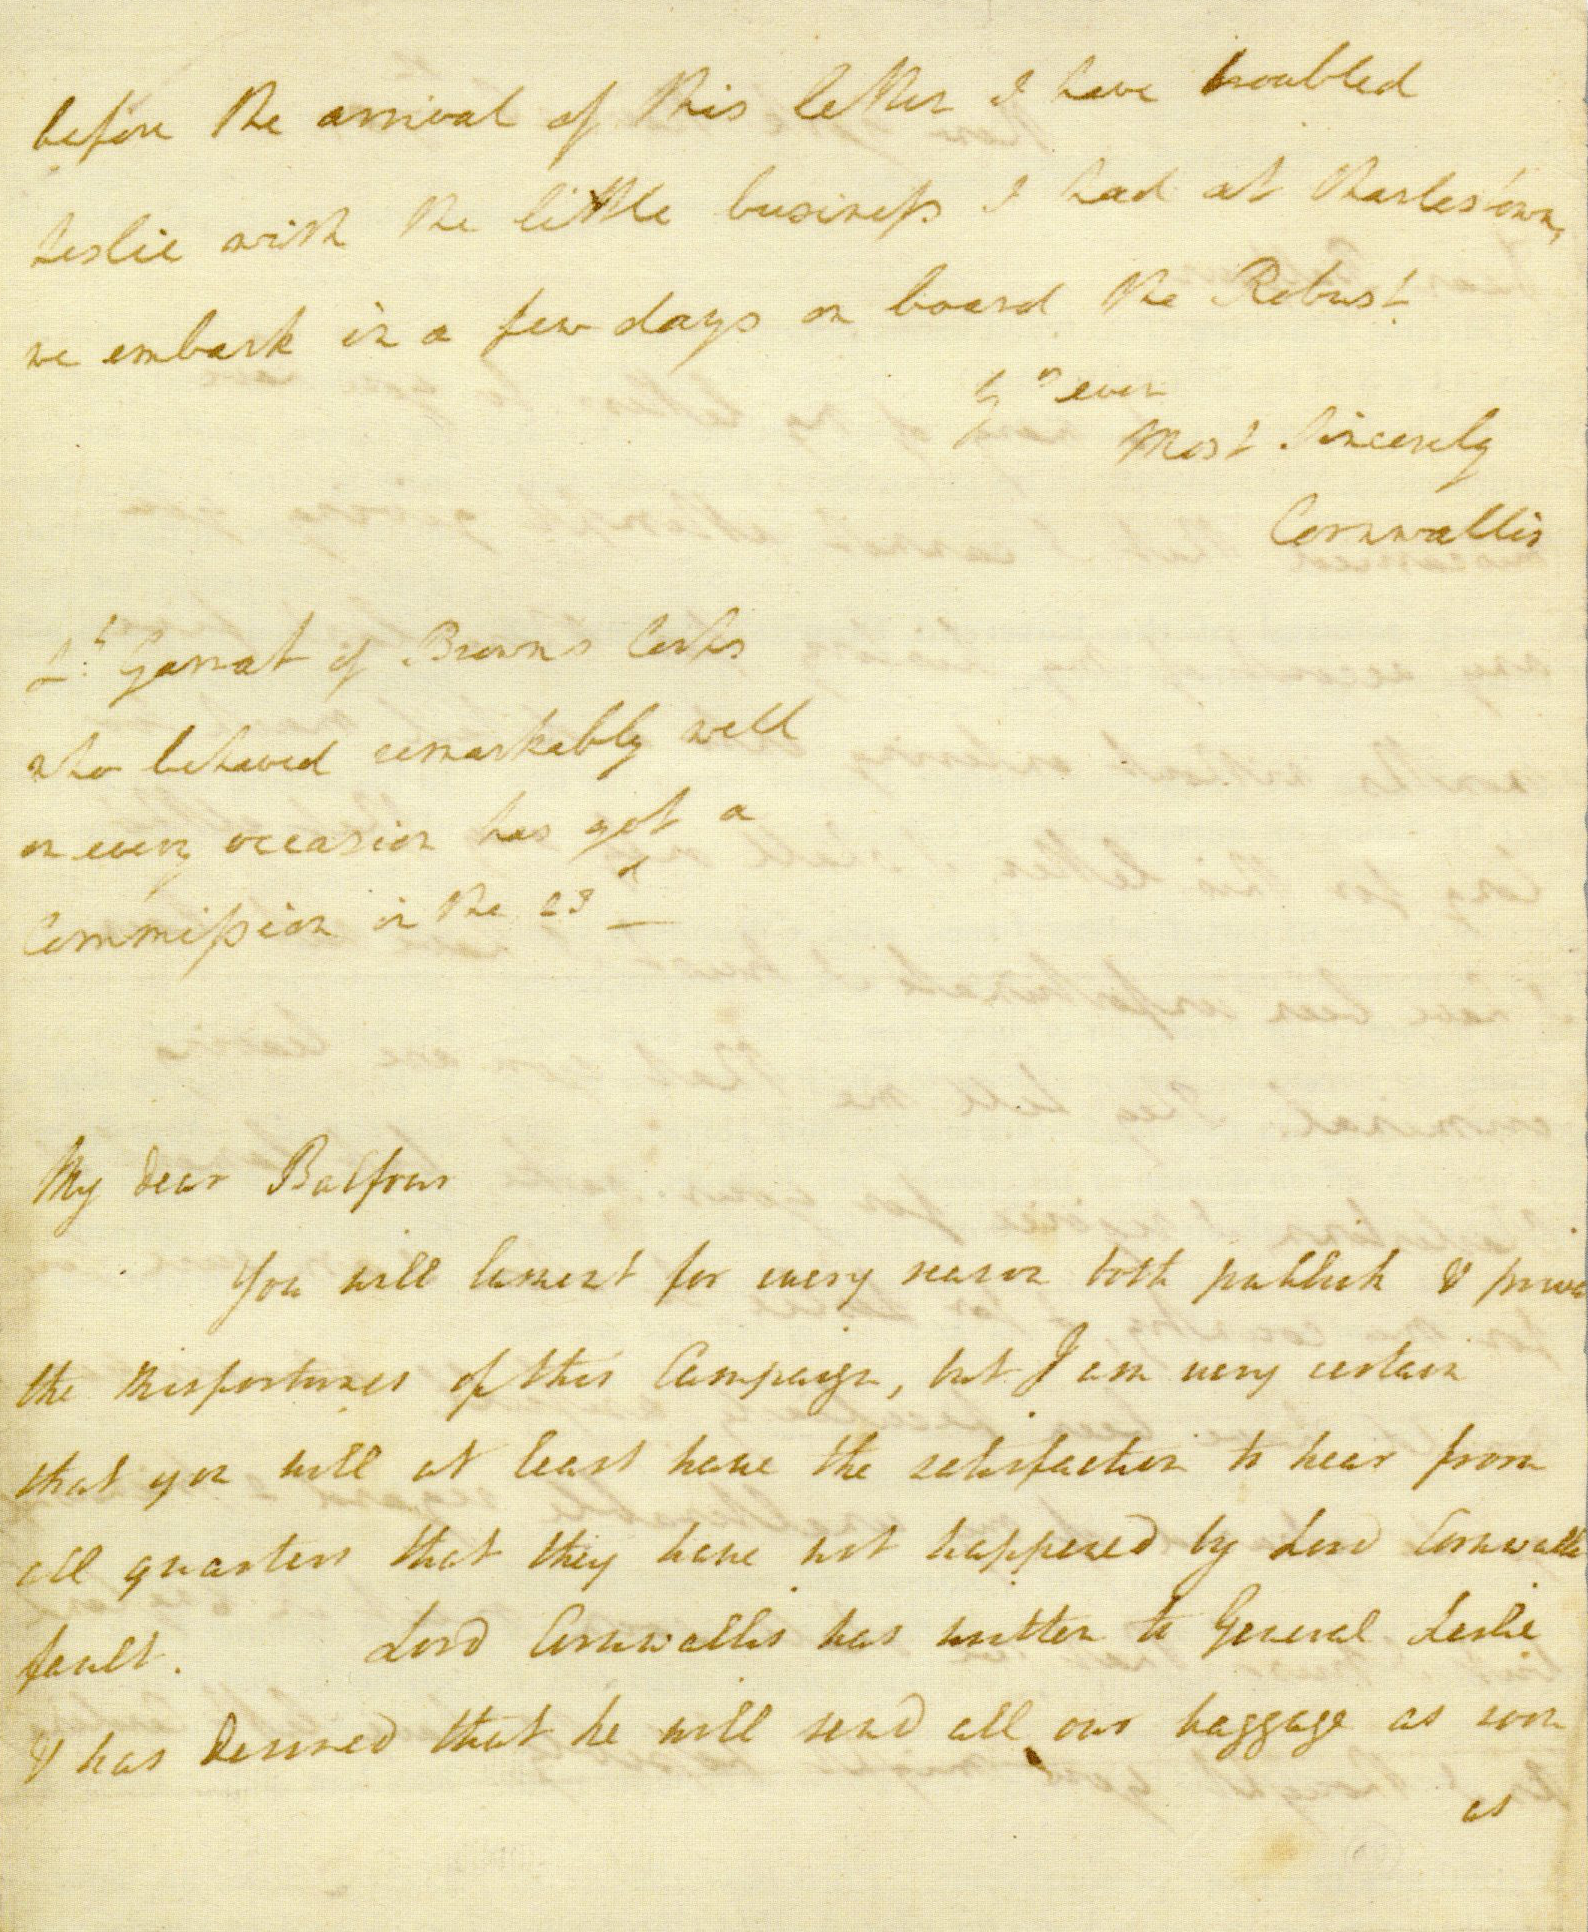 before the arrival of this letter I have troubled
Leslie with the little business I had at Charlestown,
we embark in a few days on board the Robust.
Yrs ever
Most Sincerely
Cornwallis
Lt. Garrat of Browns Corps
who behaved remarkably well
on every occasion has got a
Commission in the 23d
My dear Balfour
You will lament for every reason both publick & priva
the misfortunes of this Campaign, but I am very certain
that you will at least have the satisfaction to hear from
all quarters that they have not happened by Lord Cornwallis
fault. Lord Cornwallis has written to General Leslie
& has desired that he will send all our baggage as soon
as